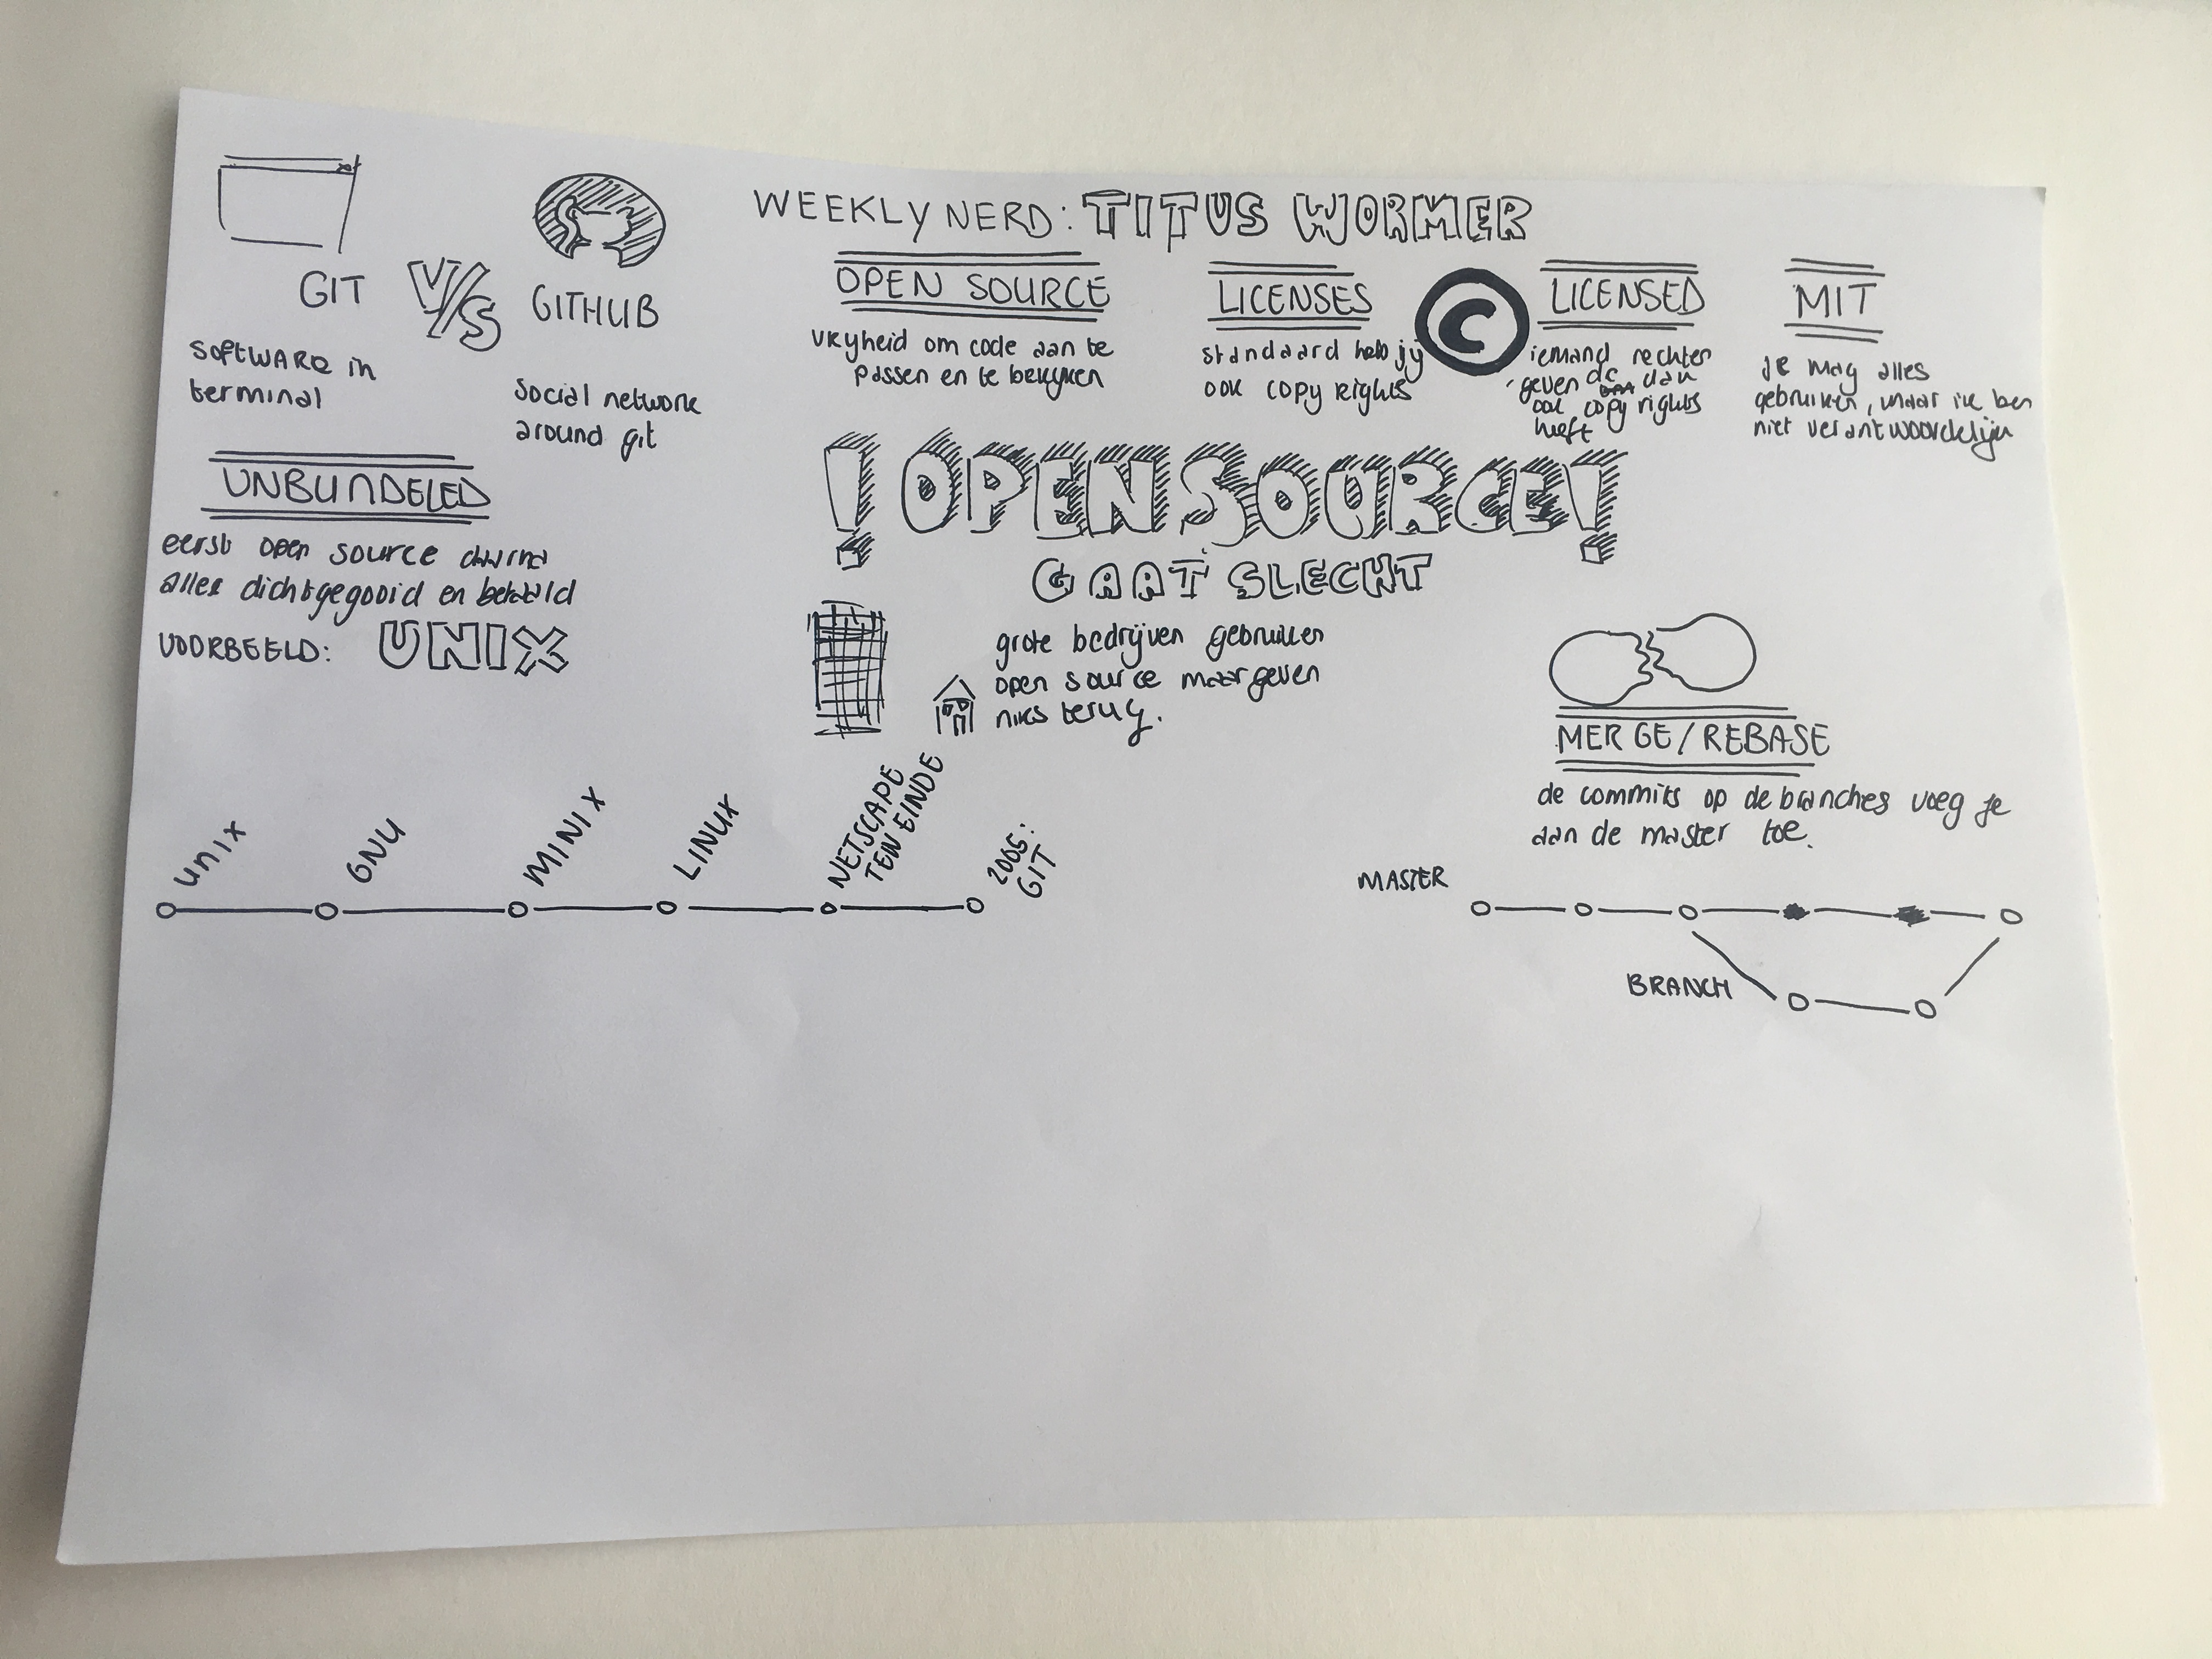 WEEKLY NERD: TITUS WORMER
GIT V/S GITHUB
SOFTWARE in
terminal
Social network
around git
OPEN SOURCE
vryheid om code aan te
passen en te bekyken
LICENSES
standaard heb jy
ook copy rights
C
LICENSED
iemand rechten
geven de dan
ook copy rights
heeft
MIT
Je mag alles
gebruiken, maar ik ben
niet verantwoordelijk
UNBUNDELED
eerst open source daarna
alles dichtgegooid en betaald
VOORBEELD: UNIX
! OPEN SOURCE !
GAAT SLECHT
grote bedrijven gebruiken
open source maar geven
niks terug.
MERGE/REBASE
de commits op de branches voeg je
aan de master toe.
unix
GNU
MINIX
LINUX
NETSCAPE
TEN EINDE
2005:
GIT
MASTER
BRANCH